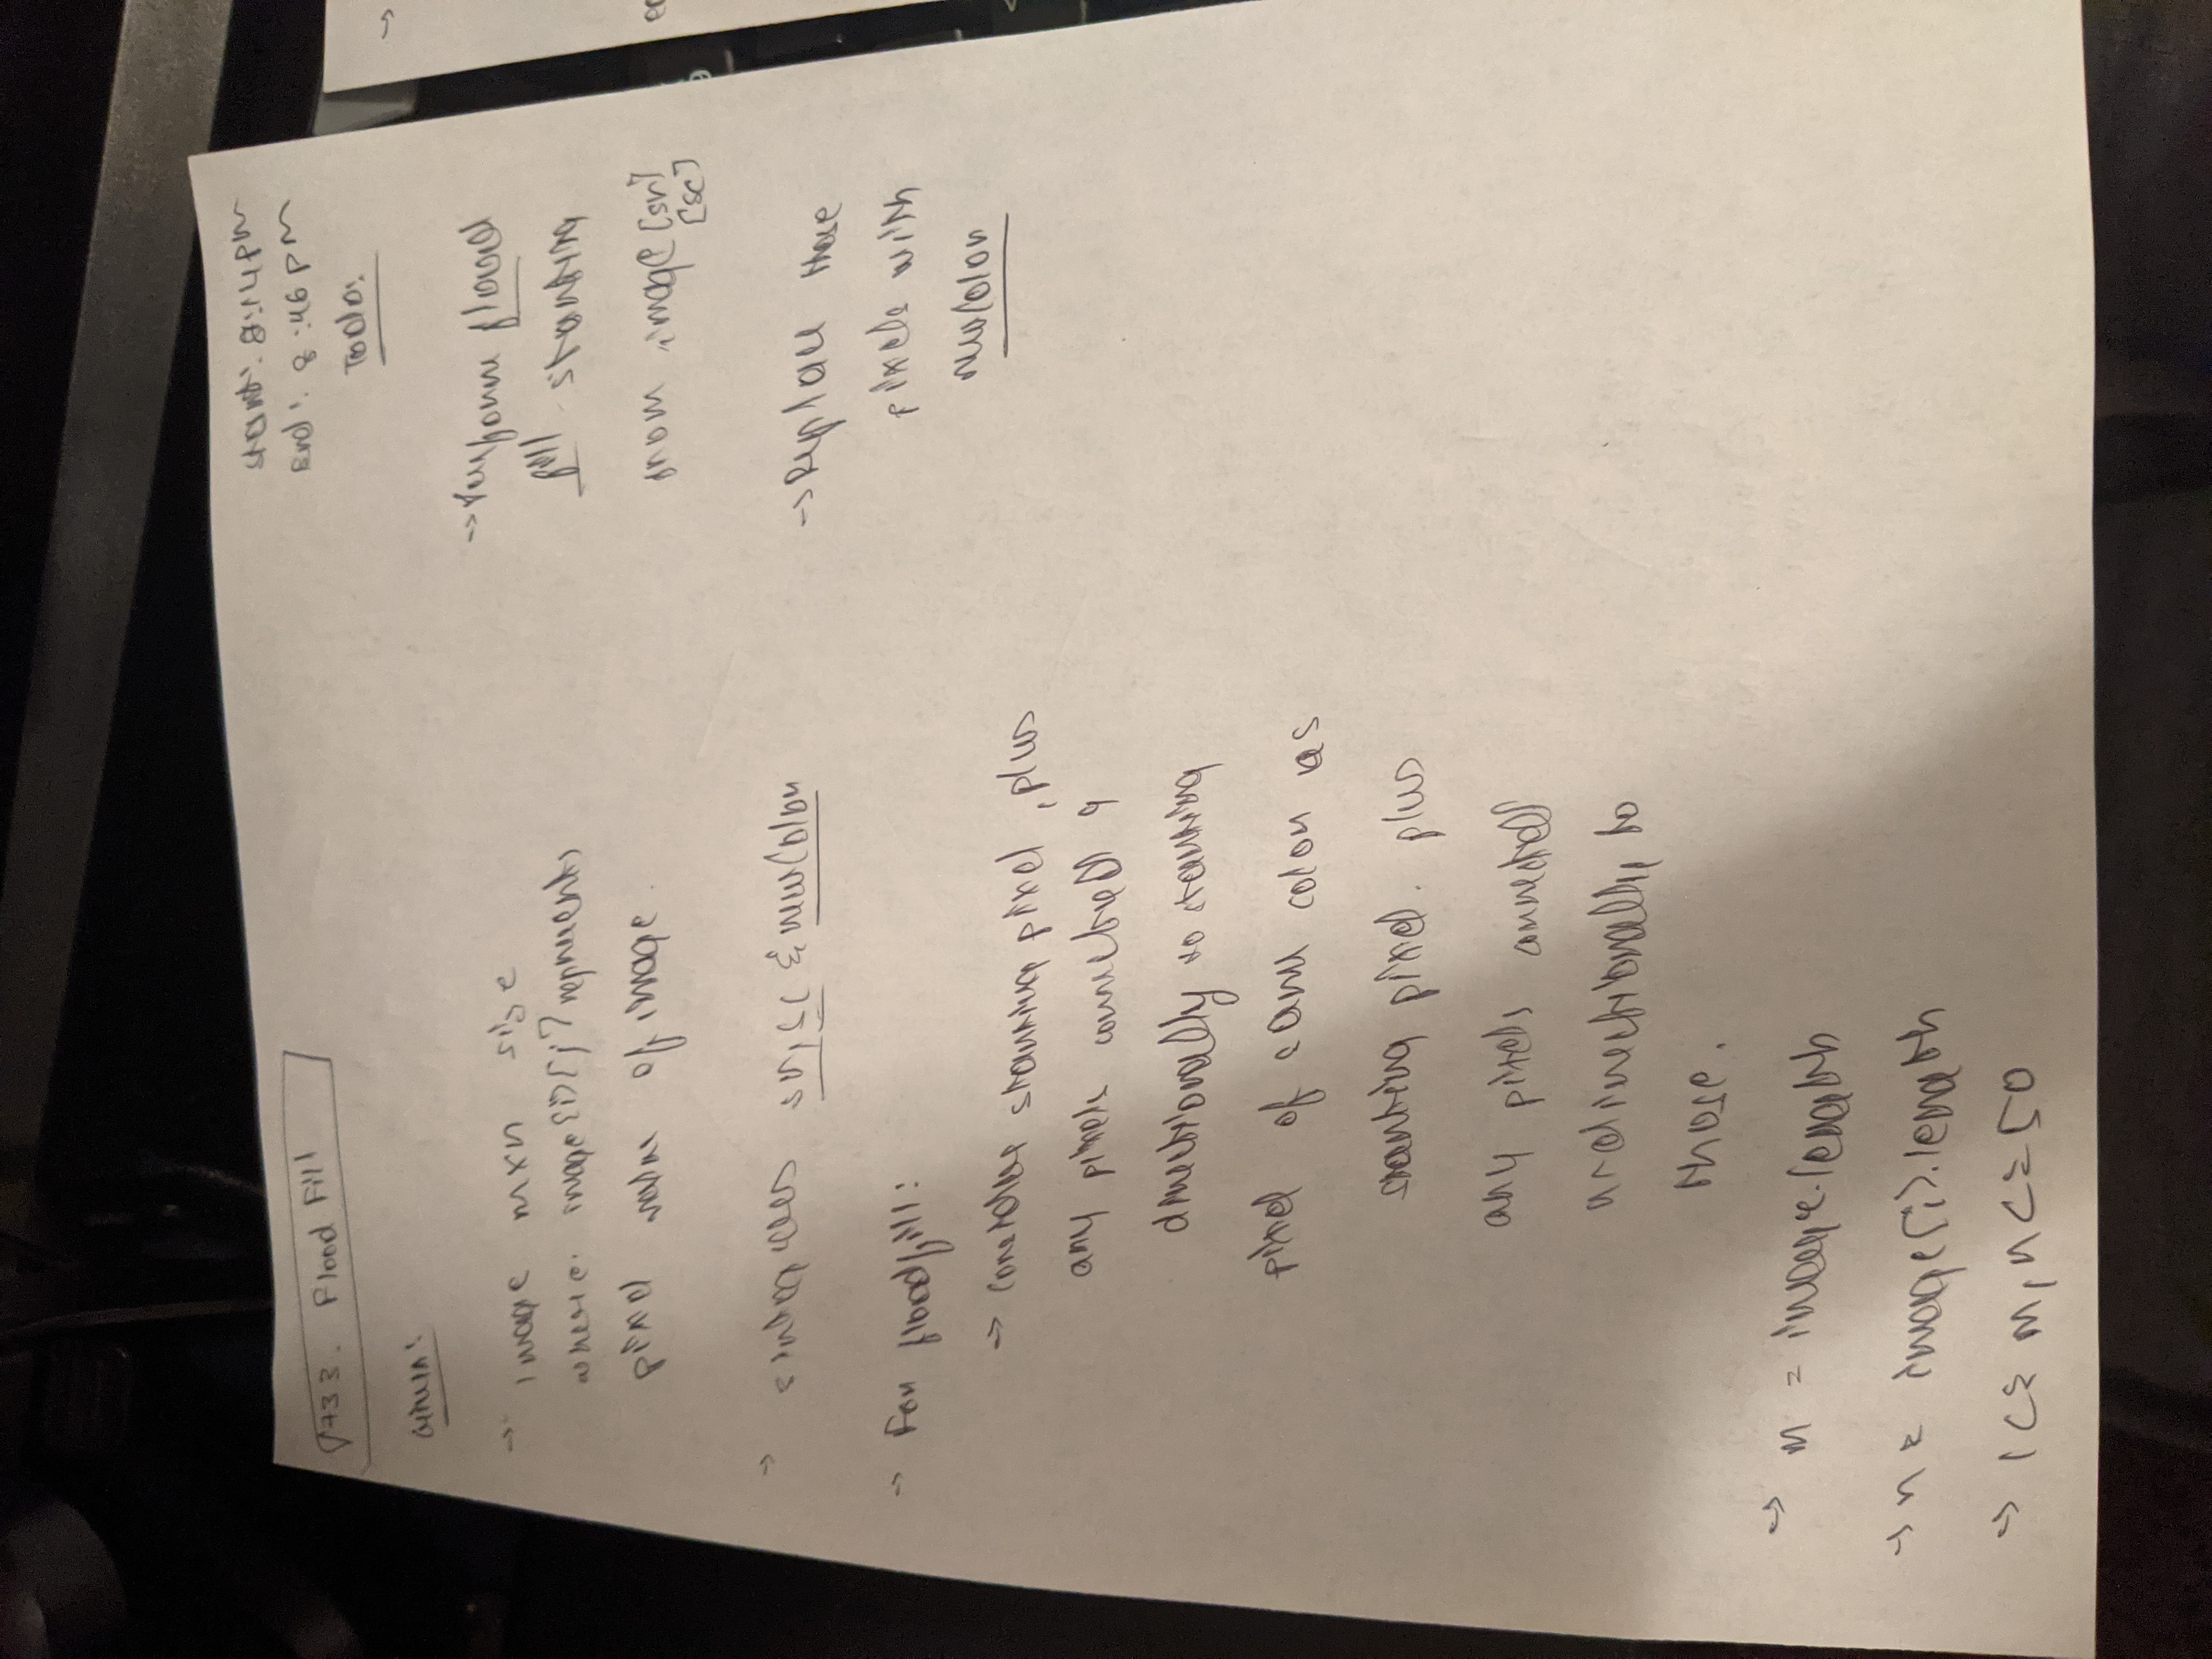 733. Flood Fill
Start: 8:14 pm
End: 8:46 pm
Todo:
Given:
→ image mxn size
where image[i][j] represents
pixel value of image.
→ 3 integers sr, sc & newColor
→ For floodfill:
→ consider starting pixel, plus
any pixels connected 4
directionally to starting
pixel of same color as
starting pixel. plus
any pixels connected
4-directionally to
those.
→ m = image.length
→ n = image[i].length
→ 1 <= m, n <= 50
→ Perform flood
fill starting
from image[sr]
[sc]
→ Replace those
pixels with
newColor
→